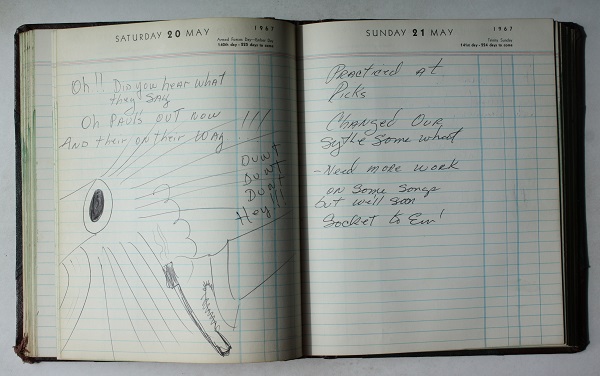 SATURDAY 20 MAY
1967
Armed Forces Day—Hockey Day
140th day - 225 days to come
Oh!! Did you hear what
they say
Oh Pauls out now
And their on their way !!!
Dunt
Dunt
Dunt
Hey!!!
SUNDAY 21 MAY
1967
Trinity Sunday
141st day - 224 days to come
Practiced at
Picks
Changed Our
sytle some what
- Need more work
on some songs
but we'll soon
Socket to Em!